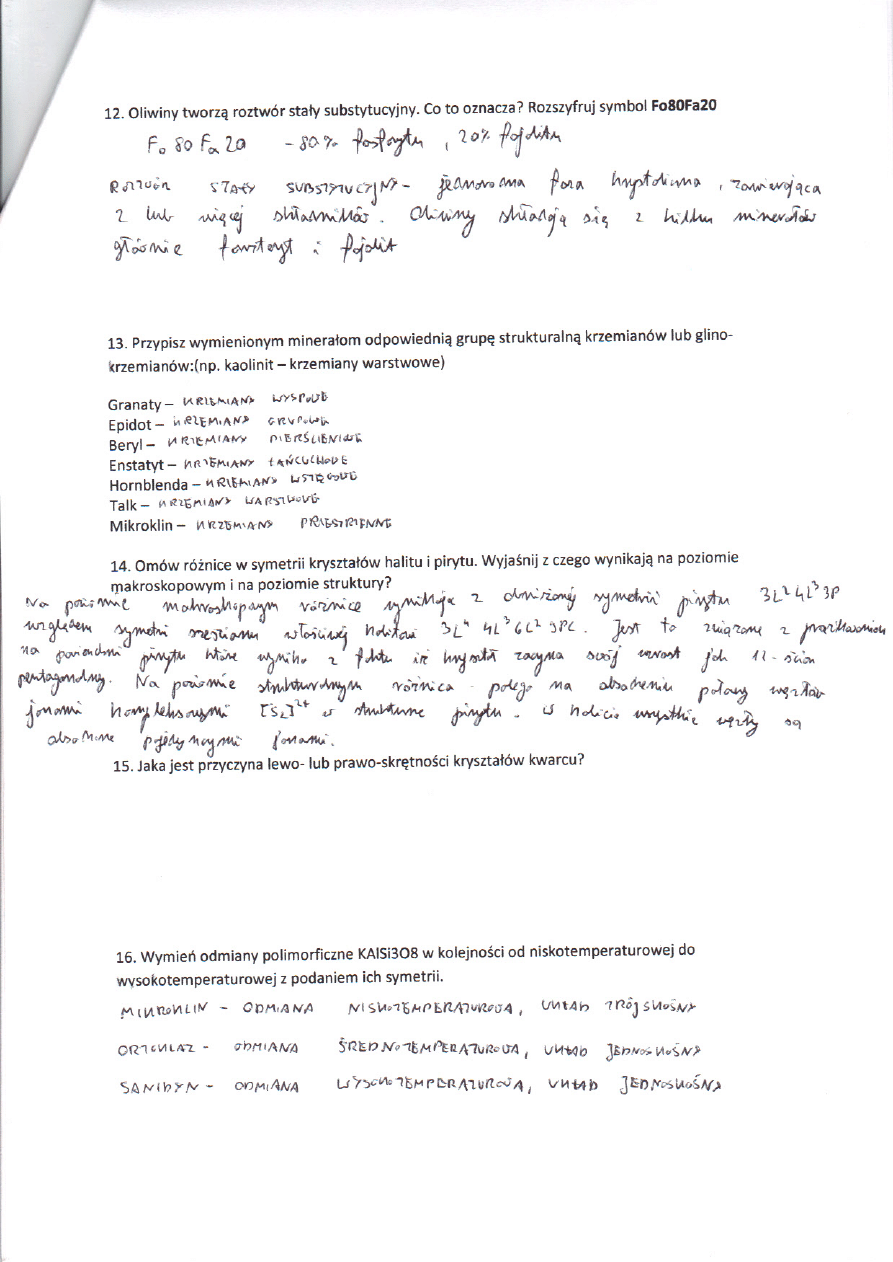 12. Oliwiny tworzą roztwór stały substytucyjny. Co to oznacza? Rozszyfruj symbol Fo80Fa20
Fo 80 Fa 20 - 80% fosforytu , 20% fajalitu
ROZTWÓR STAŁY SUBSTYTUCYJNY - jednorodna faza krystaliczna , zawierająca
2 lub więcej składników . Oliwiny składają się z kilku minerałów
głównie forsteryt i fajalit
13. Przypisz wymienionym minerałom odpowiednią grupę strukturalną krzemianów lub glino-
krzemianów:(np. kaolinit – krzemiany warstwowe)
Granaty – KRZEMIANY WYSPOWE
Epidot – KRZEMIANY GRUPOWE
Beryl – KRZEMIANY PIERŚCIENIOWE
Enstatyt – KRZEMIANY ŁAŃCUCHOWE
Hornblenda – KRZEMIANY WSTĘGOWE
Talk – KRZEMIANY WARSTWOWE
Mikroklin – KRZEMIANY PRZESTRZENNE
14. Omów różnice w symetrii kryształów halitu i pirytu. Wyjaśnij z czego wynikają na poziomie
makroskopowym i na poziomie struktury?
Na poziomie makroskopowym różnice wynikają z obniżonej symetrii pirytu 3L² 4L³ 3P
względem symetrii sześcianu właściwej halitowi 3L⁴ 4L³ 6L² 9PC . Jest to związane z prążkowaniem
na powierzchni pirytu które wynika z faktu iż kryształ zaczyna swój wzrost jako 12 - ścian
pentagonalny. Na poziomie strukturalnym różnica polega na obsadzeniu połowy węzłów
jonami kompleksowymi [S₂]²⁺ w strukturze pirytu . W halicie wszystkie węzły są
obsadzone pojedynczymi jonami.
15. Jaka jest przyczyna lewo- lub prawo-skrętności kryształów kwarcu?
16. Wymień odmiany polimorficzne KAlSi3O8 w kolejności od niskotemperaturowej do
wysokotemperaturowej z podaniem ich symetrii.
MIKROKLIN - ODMIANA NISKOTEMPERATUROWA , UKŁAD TRÓJSKOŚNY
ORTOKLAZ - ODMIANA ŚREDNOTEMPERATUROWA , UKŁAD JEDNOSKOŚNY
SANIDYN - ODMIANA WYSOKOTEMPERATUROWA , UKŁAD JEDNOSKOŚNY